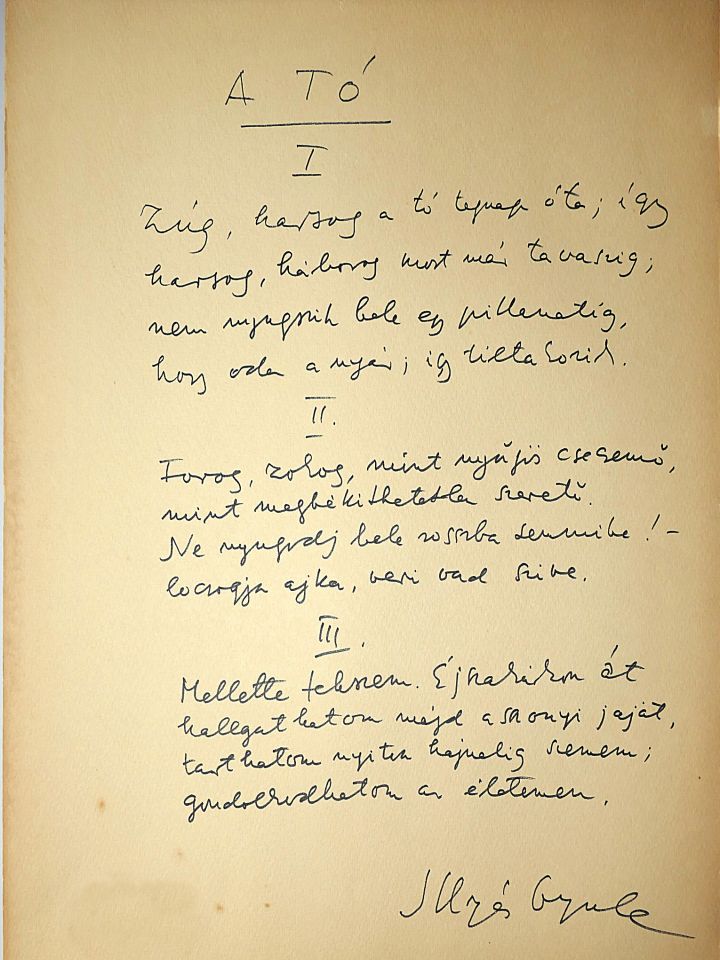 A TÓ
I
Zúg, harsog a tó tegnap óta; így
harsog, háborog most már tavaszig;
nem nyugszik bele egy pillanatig,
hogy oda a nyár; így tiltakozik.
II.
Forog, zokog, mint nyűgös csecsemő,
mint megbékíthetetlen szerető.
Ne nyugodj bele rosszba semmibe! –
locsogja ajka, veri vad szive.
III.
Mellette fekszem. Éjszakákon át
hallgathatom majd asszonyi jaját,
tarthatom nyitva hajnalig szemem;
gondolkodhatom az életemen.
Illyés Gyula